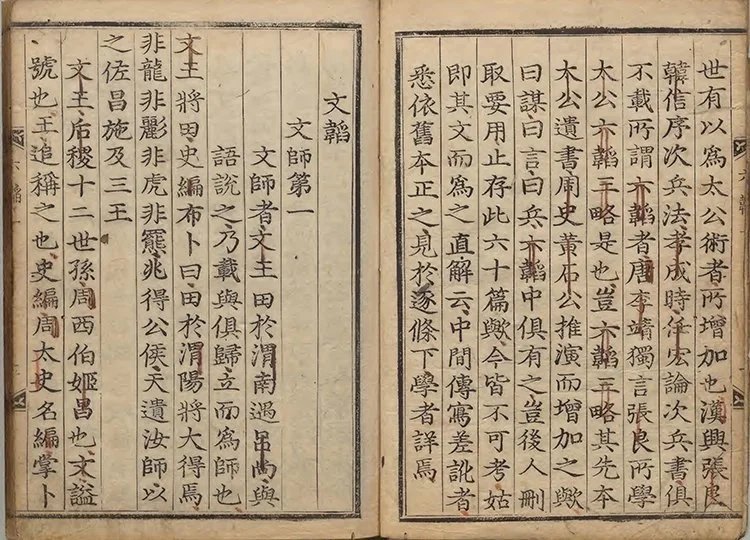 世有以爲太公術者所增加也漢興張良
韓信序次兵法孝成時任宏論次兵書俱
不載所謂六韜者唐李靖獨言張良所學
太公六韜三略是也豈六韜三略其先本
太公遺書周史黃石公推演而增加之歟
曰謀曰言曰兵六韜中俱有之豈後人刪
取要用止存此六十篇歟今皆不可考姑
即其文而爲之直解云中間傳寫差訛者
悉依舊本正之見於逐條下學者詳焉
文韜
文師第一
文師者文王田於渭南遇呂尚與
語說之乃載與俱歸立而爲師也
文王將田史編布卜曰田於渭陽將大得焉
非龍非彲非虎非羆兆得公侯天遺汝師以
之佐昌施及三王
文王后稷十二世孫周西伯姬昌也文謚
號也王追稱之也史編周太史名編掌卜
六韜
六韜一